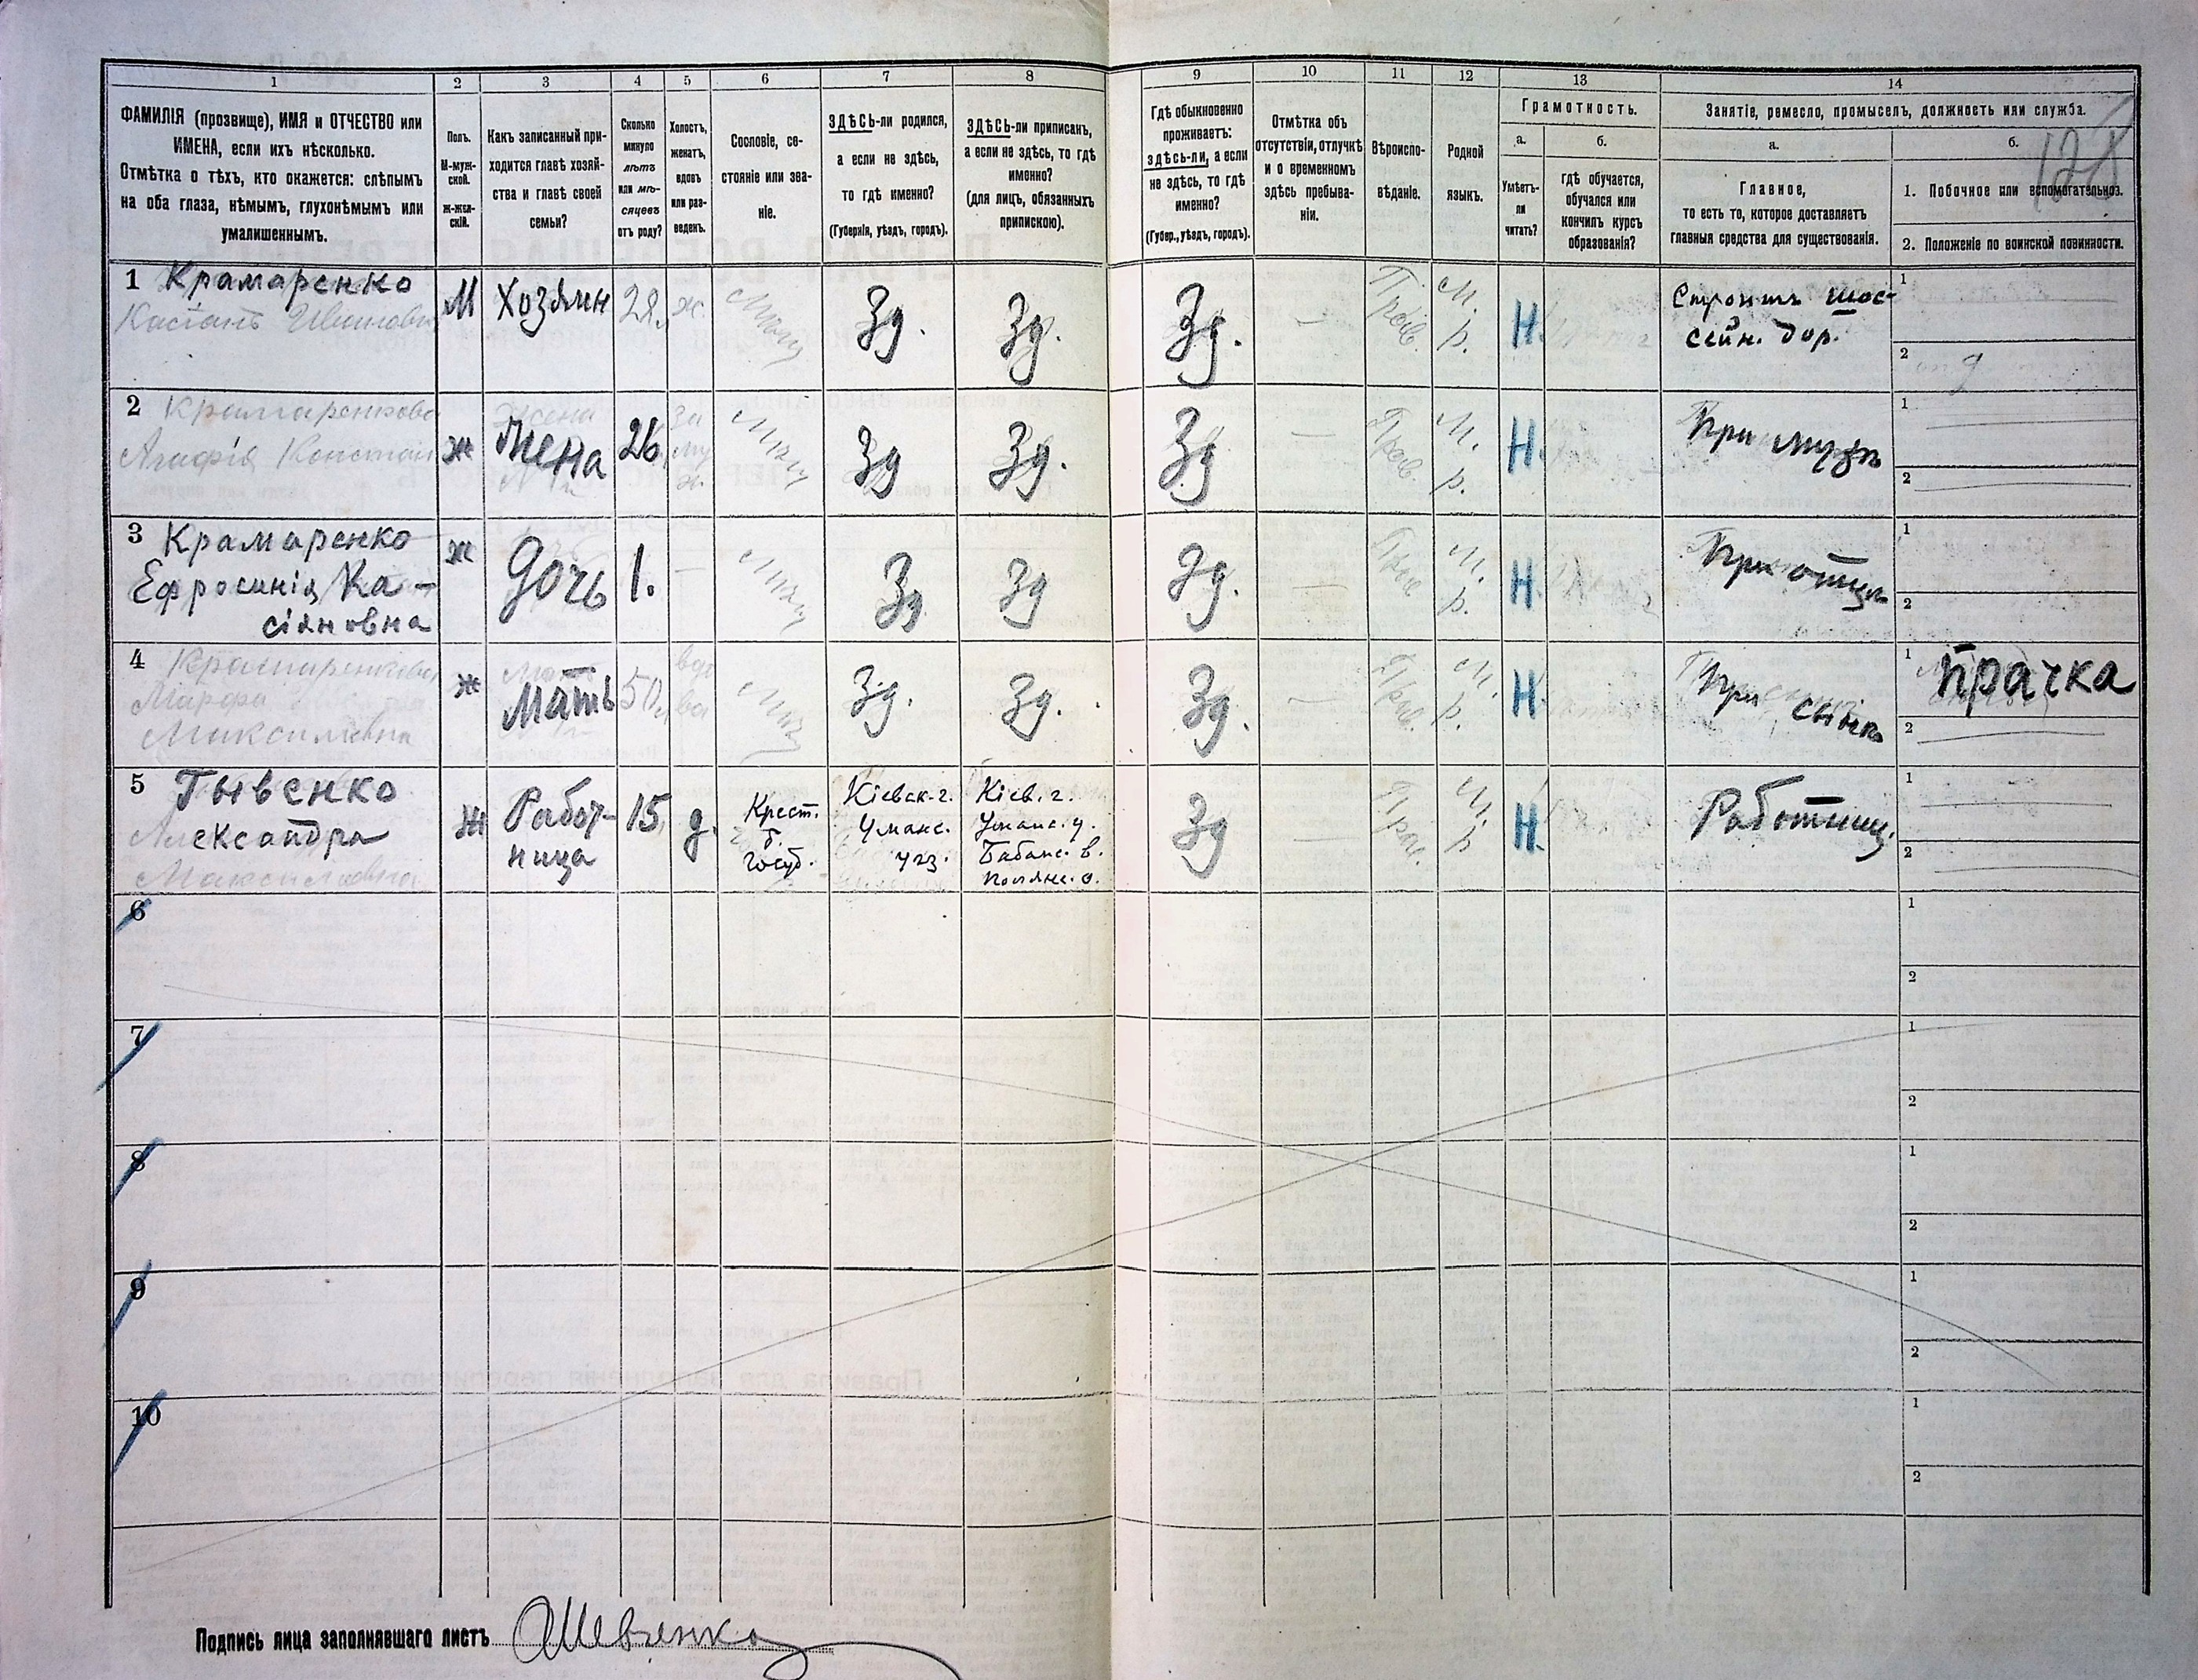 1 2 3 4 5 6 7 8 9 10 11 12 13 14
ФАМИЛІЯ (прозвище), ИМЯ и ОТЧЕСТВО или
ИМЕНА, если ихъ нѣсколько.
Отмѣтка о тѣхъ, кто окажется: слѣпымъ
на оба глаза, нѣмымъ, глухонѣмымъ или
умалишеннымъ.
Полъ.
М-муж-
ской.
Ж-жен-
скій.
Какъ записанный при-
ходится главѣ хозяй-
ства и главѣ своей
семьи?
Сколько
минуло
лѣтъ
или мѣ-
сяцевъ
отъ роду?
Холостъ,
женатъ,
вдовъ
или раз-
веденъ.
Сословіе, со-
стояніе или зва-
ніе.
ЗДѢСЬ-ли родился,
а если не здѣсь,
то гдѣ именно?
(Губернія, уѣздъ, городъ).
ЗДѢСЬ-ли приписан,
а если не здѣсь, то гдѣ
именно?
(для лицъ, обязанныхъ
припискою).
Гдѣ обыкновенно
проживаетъ:
здѣсь-ли, а если
не здѣсь, то гдѣ
именно?
(Губер., уѣздъ, городъ).
Отмѣтка объ
отсутствіи, отлучкѣ
и о временномъ
здѣсь пребыва-
ніи.
Вѣроиспо-
вѣданіе.
Родной
языкъ.
Грамотность.
а.
Умѣетъ-
ли
читать?
б.
гдѣ обучается,
обучался или
кончилъ курсъ
образованія?
Занятіе, ремесло, промыселъ, должность или служба.
а.
Главное,
то есть то, которое доставляетъ
главныя средства для существованія.
б.
1. Побочное или вспомогательноэ.
2. Положеніе по воинской повинности.
1 Крамаренко
Касіанъ Ивановъ
М
Хозяин
28.
ж.
Мѣщ
Зд.
Зд.
Зд.
—
Прав.
М.
р.
Н.
Строитъ шос-
сейн. дор.
1
2
2 Крамаренкова
Агафія Констан
ж
Жена
26
За
му
ж.
Мѣщ
Зд
Зд.
Зд
—
Прав.
М.
р.
Н.
При мужѣ
1
2
3 Крамаренко
Ефросинія Ка-
сіановна
ж
Дочь
1.
—
Мѣщ
Зд
Зд
Зд.
—
М.
р.
Н.
При отцѣ
1
2
4 Крамаренкова
Марфа
Максимовна
ж
Мать
50
вдо
ва
Мѣщ
Зд.
Зд.
Зд.
—
Прав.
М.
р.
Н.
При сынѣ
1 Прачка
2
5 Гывенко
Александра
Максимовна
ж
Работ-
ница
15
д.
Крест.
б.
госуд.
Кіевск. г.
Уманс.
уѣз.
Кіев. г.
Уманс. у.
Бабанс. в.
Полянс. о.
Зд
—
Прав.
М.
р
Н.
Работниц.
1
2
6
1
2
7
1
2
8
1
2
9
1
2
10
1
2
Подпись лица заполнявшаго листъ АШевченко